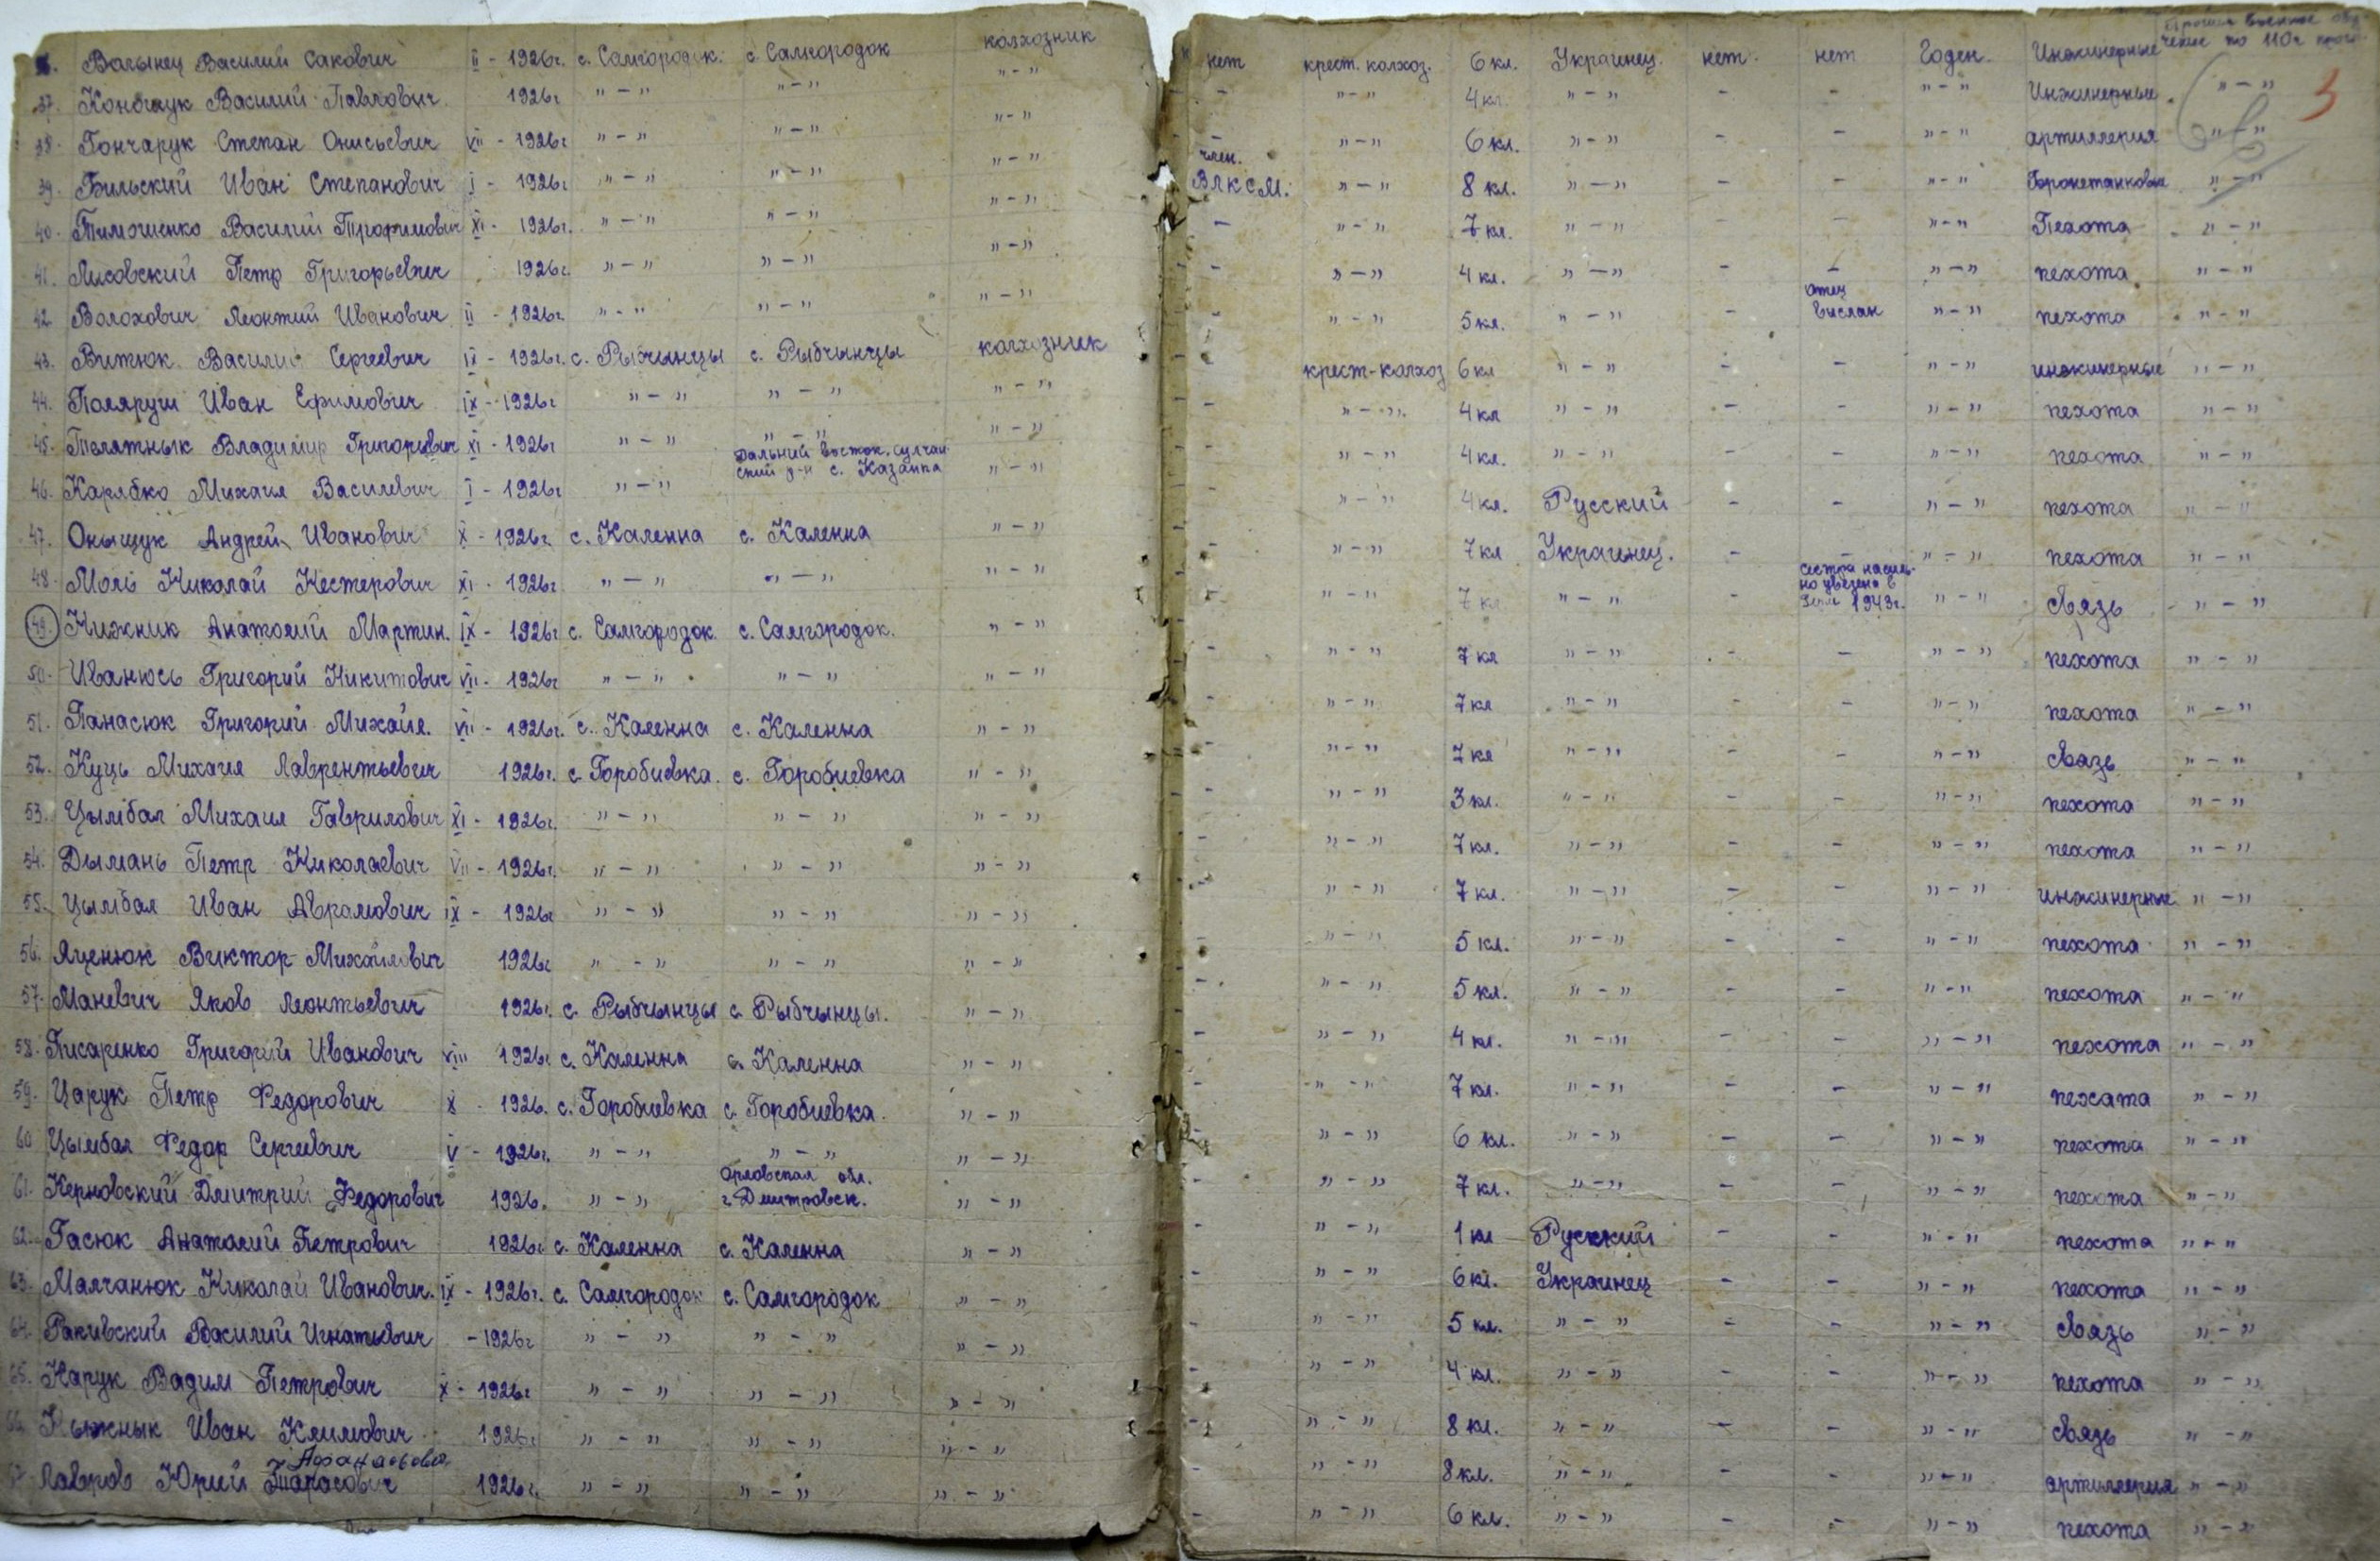 36. Волынец Василий Сакович II - 1926г. с. Самгородок. с. Самгородок колхозник нет крест. колхоз. 6 кл. Украинец. нет. нет Годен. Инженерные Прошел военное обучение по 110ч прогр.
37. Василий Павлович 1926г "-" "-" "-" - "-" 4 кл "-" - - "-" Инженерные "-"
38. Гончарук Степан Онисьевич VII - 1926г "-" "-" "-" - "-" 6 кл. "-" - - "-" артиллерия "-"
39. Бильский Иван Степанович I - 1926г "-" "-" "-" член. ВЛКСМ. "-" 8 кл. "-" - - "-" Бронетанковые "-"
40. Тимошенко Василий Трофимович XI - 1926г. "-" "-" "-" - "-" 7 кл. "-" - - "-" Пехота "-"
41. Лисовский Петр Григорьевич 1926г. "-" "-" "-" - "-" 4 кл. "-" - - "-" пехота "-"
42. Волохович Леонтий Иванович II - 1926г. "-" "-" "-" - "-" 5 кл. "-" - отец выслан "-" пехота "-"
43. Витюк Василий Сергеевич IX - 1926г. с. Рыбчынцы с. Рыбчынцы колхозник - крест-колхоз 6 кл "-" - - "-" инженерные "-"
44. Поляруш Иван Ефимович IX - 1926г "-" "-" "-" - "-" 4 кл "-" - - "-" пехота "-"
45. Телятнык Владимир Григорьевич XI - 1926г "-" "-" "-" - "-" 4 кл. "-" - - "-" пехота "-"
46. Карябко Михаил Василевич I - 1926г "-" Дальний восток. ский р-н с. Казанка "-" - "-" 4 кл. Русский - - "-" пехота "-"
47. Оныщук Андрей Иванович X - 1926г. с. Каленна с. Каленна "-" - "-" 7 кл Украинец. - - "-" пехота "-"
48. Моль Николай Нестерович XI - 1926г "-" "-" "-" - "-" 7 кл "-" - сестра насильно увезена в 1943г. "-" связь "-"
49. Нижник Анатолий Мартин. IX - 1926г с. Самгородок. с. Самгородок. "-" - "-" 7 кл "-" - - "-" пехота "-"
50. Иванюсь Григорий Никитович VII - 1926г "-" "-" "-" - "-" 7 кл "-" - - "-" пехота "-"
51. Панасюк Григорий Михайл. VII - 1926г. с. Каленна с. Каленна "-" - "-" 7 кл "-" - - "-" связь "-"
52. Куць Михаил Лаврентьевич 1926г. с. Горобиевка. с. Горобиевка "-" "-" 3 кл. "-" - - "-" пехота "-"
53. Цымбал Михаил Гаврилович XI - 1926г. "-" "-" "-" - "-" 7 кл. "-" - - "-" пехота "-"
54. Дымань Петр Николаевич VII - 1926г. "-" "-" "-" - "-" 7 кл. "-" - - "-" инженерные "-"
55. Цымбал Иван Аврамович IX - 1926г "-" "-" "-" - "-" 5 кл. "-" - - "-" пехота "-"
56. Яценюк Виктор Михайлович 1926г "-" "-" "-" - "-" 5 кл. "-" - - "-" пехота "-"
57. Маневич Яков Леонтьевич 1926г. с. Рыбчынцы с. Рыбчынцы. "-" - "-" 4 кл. "-" - - "-" пехота "-"
58. Писаренко Григорий Иванович VIII 1926г с. Каленна с. Каленна "-" - "-" 7 кл. "-" - - "-" пехота "-"
59. Царук Петр Федорович X - 1926. с. Горобиевка с. Горобиевка. "-" - "-" 6 кл. "-" - - "-" пехота "-"
60 Цымбал Федор Сергеевич V - 1926г. "-" "-" "-" - "-" 7 кл. "-" - - "-" пехота "-"
61. Керновский Дмитрий Федорович 1926. "-" Орловская обл. г. Дмитровск. "-" - "-" 1 кл Русский - - "-" пехота "-"
62. Гасюк Анатолий Петрович 1926г с. Каленна с. Каленна "-" - "-" 6 кл. Украинец - - "-" пехота "-"
63. Малчанюк Николай Иванович. IX - 1926г. с. Самгородок с. Самгородок "-" - "-" 5 кл. "-" - - "-" связь "-"
64. Ракивский Василий Игнатьевич - 1926г "-" "-" "-" - "-" 4 кл. "-" - - "-" пехота "-"
65. Карук Вадим Петрович X - 1926г "-" "-" "-" - "-" 8 кл. "-" - - "-" связь "-"
66. Ныжнык Иван Климович 1926г. "-" "-" "-" - "-" 8 кл. "-" - - "-" артиллерия "-"
Афанасьевич
67. Лавров Юрий Тарасович 1926г. "-" "-" "-" - "-" 6 кл. "-" - - "-" пехота "-"
3